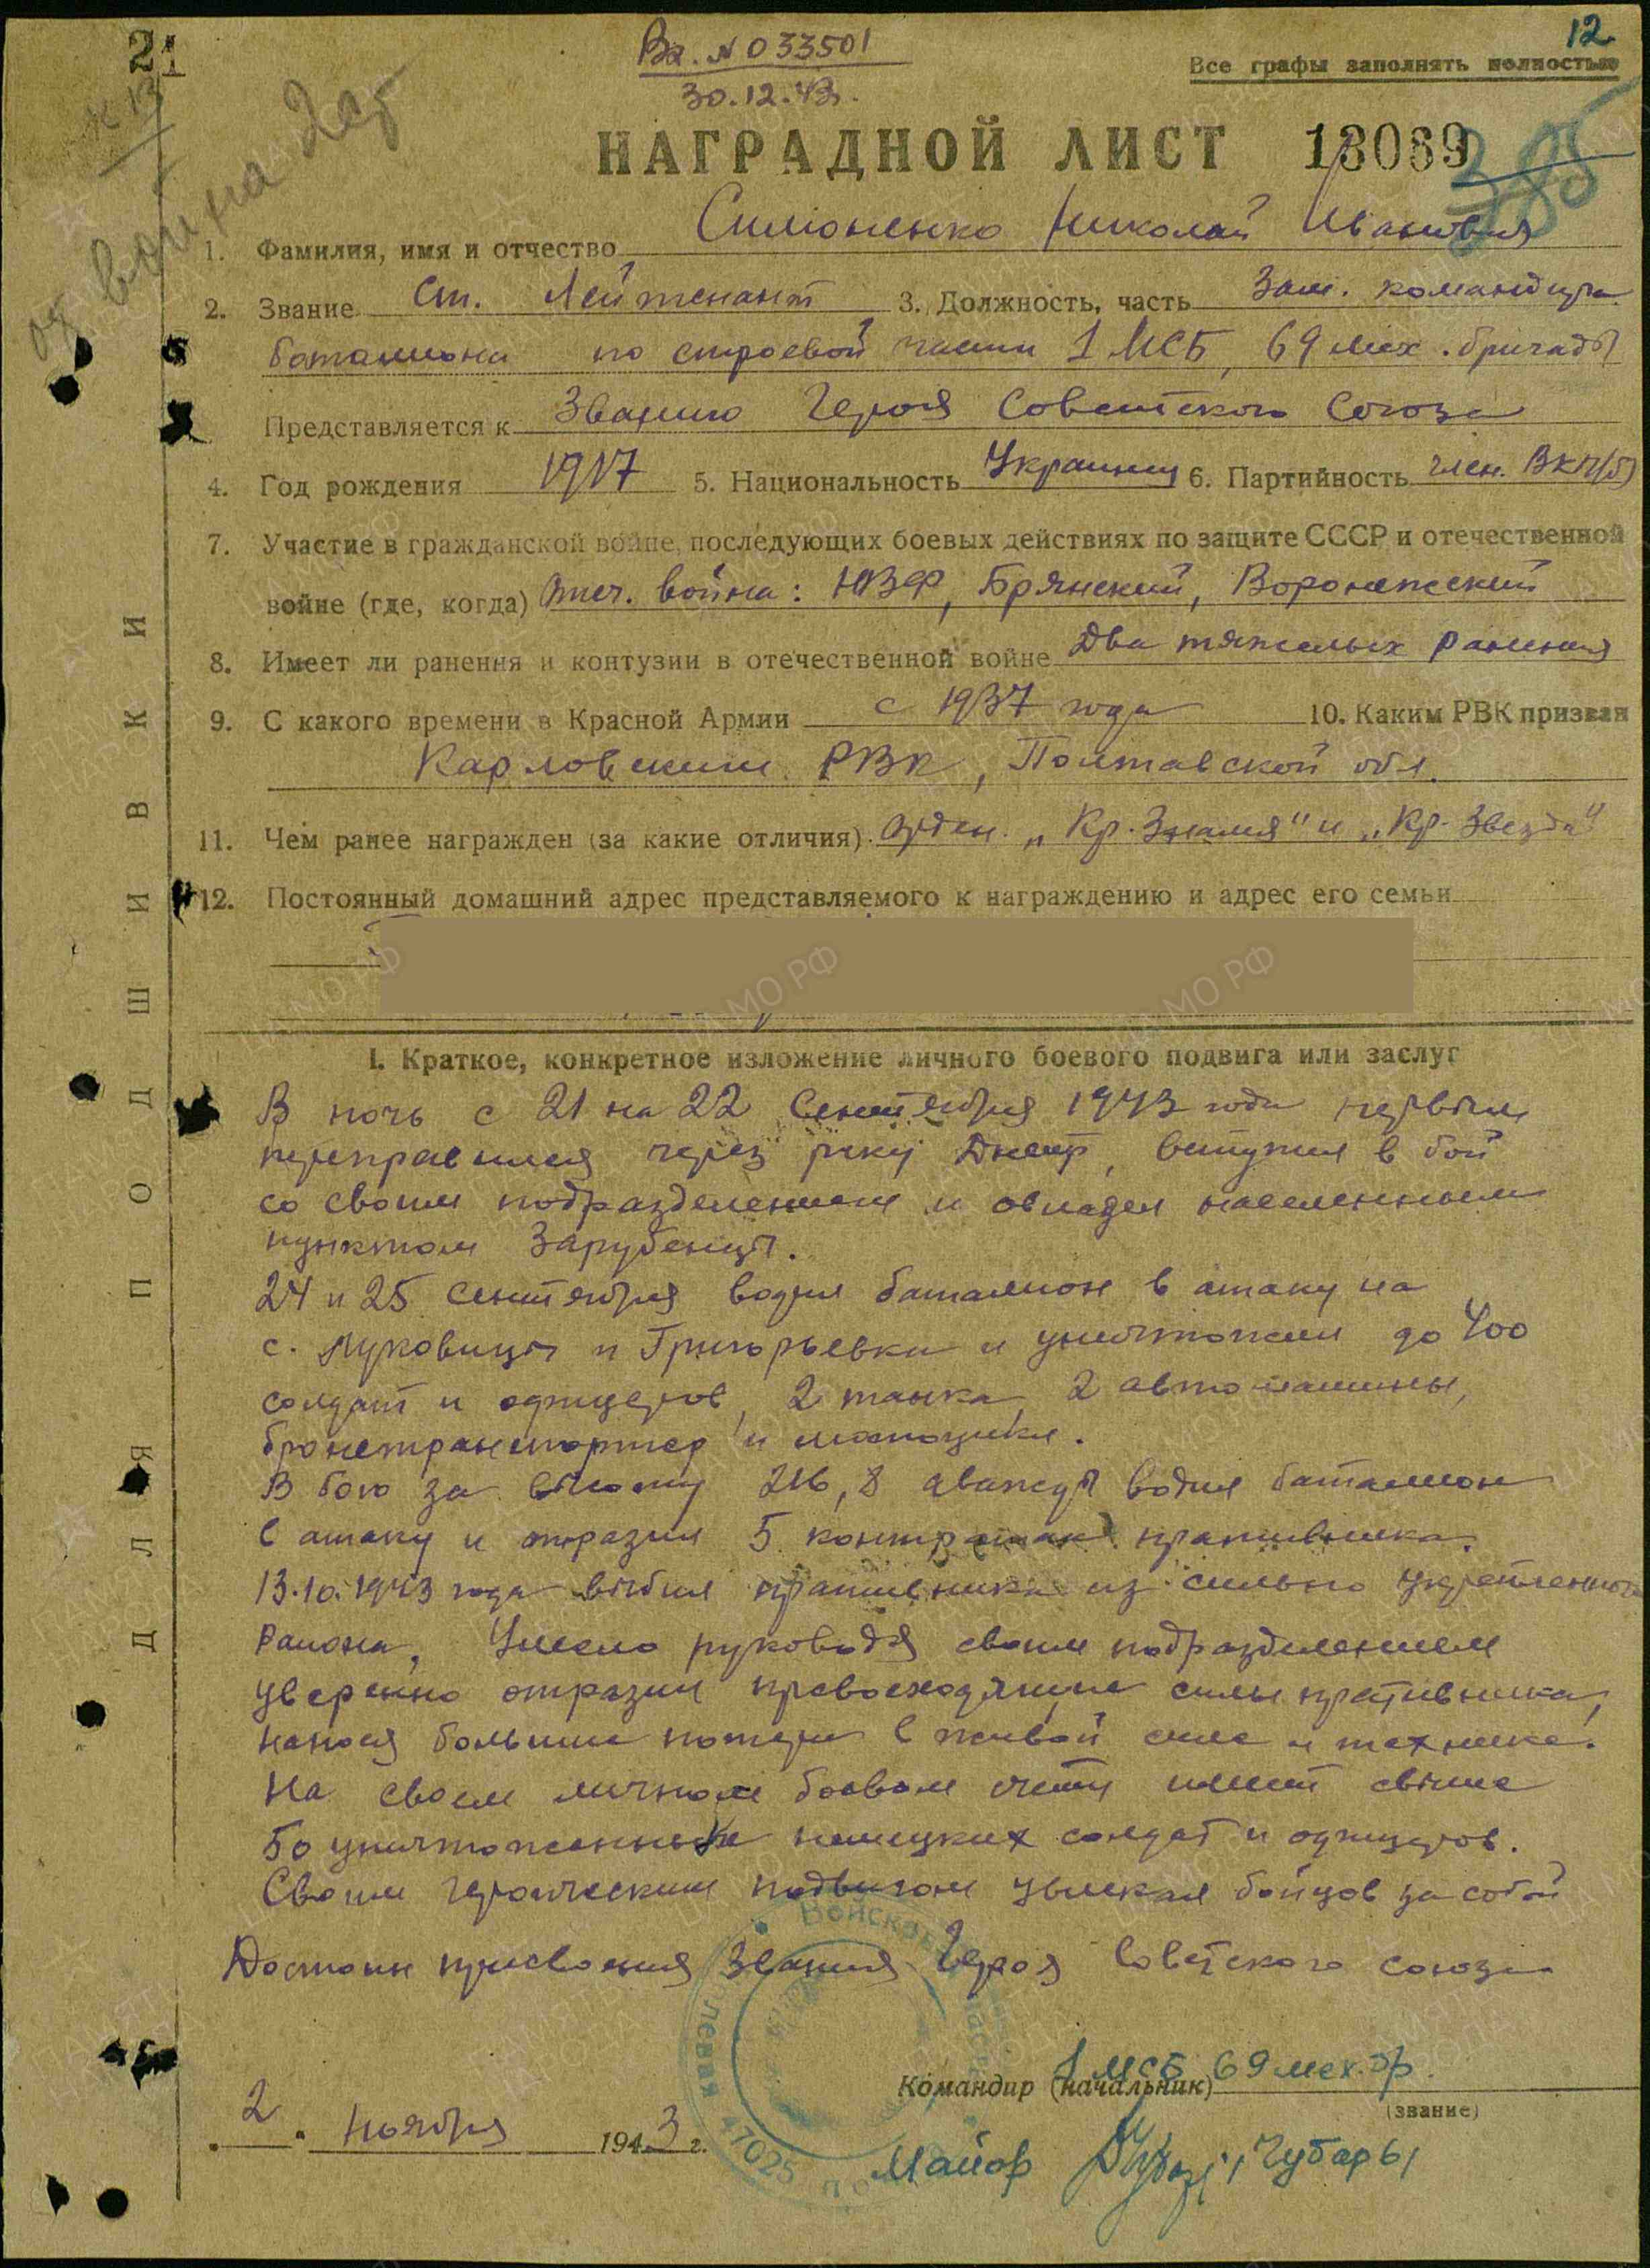 21
Вх. № 033501
30.12.43.
12
Все графы заполнять полностью
НАГРАДНОЙ ЛИСТ 18069
385
1. Фамилия, имя и отчество Симоненко Николай Иванович
2. Звание Ст. Лейтенант 3. Должность, часть Зам. командира
батальона по строевой части 1 МСБ, 69 мех. бригады
Представляется к Званию Героя Советского Союза
4. Год рождения 1917 5. Национальность Украинец 6. Партийность член. ВКП(б)
7. Участие в гражданской войне, последующих боевых действиях по защите СССР и отечественной
войне (где, когда) Отеч. война: ЮЗФ, Брянский, Воронежский
8. Имеет ли ранения и контузии в отечественной войне Два тяжелых ранения
9. С какого времени в Красной Армии с 1937 года 10. Каким РВК призван
Карловским РВК, Полтавской обл.
11. Чем ранее награжден (за какие отличия) орден. „Кр. Знамя" и „Кр. Звезда"
12. Постоянный домашний адрес представляемого к награждению и адрес его семьи
I. Краткое, конкретное изложение личного боевого подвига или заслуг
В ночь с 21 на 22 Сентября 1943 года первым
переправился через реку Днепр, вступил в бой
со своим подразделением и овладел населенным
пунктом Зарубенцы.
24 и 25 Сентября водил батальон в атаку на
с. Луковицы и Григорьевка и уничтожили до 400
солдат и офицеров, 2 танка, 2 автомашины,
бронетранспортер и мотоцикл.
В бою за высоту 216,8 дважды водил батальон
в атаку и отразил 5 контратак противника.
13.10.1943 года выбил противника из сильно укрепленного
Района, Умело руководя своим подразделением
уверенно отразил превосходящие силы противника,
нанося большие потери в живой силе и технике.
На своем личном боевом счету имеет свыше
50 уничтоженных немецких солдат и офицеров.
Своим героическим подвигом увлекал бойцов за собой
Достоин присвоения Звания Героя Советского Союза
Войсковая часть полевая почта 47025
Командир (начальник) 1 МСБ 69 мех. бр.
(звание)
2. Ноября 1943 г.
Майор Чубарь
ДЛЯ ПОДШИВКИ